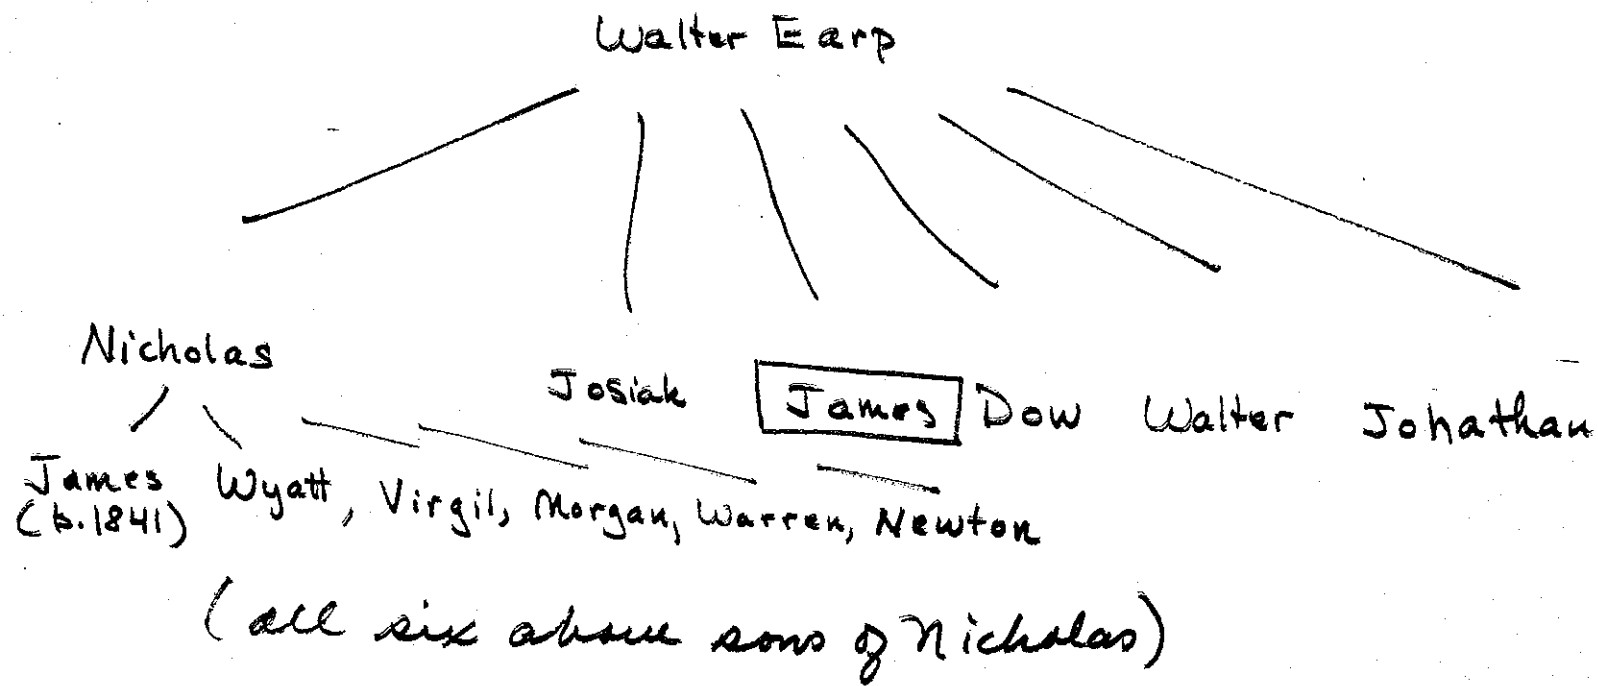 Walter Earp
Nicholas
Josiah James Dow Walter Johathan
James Wyatt, Virgil, Morgan, Warren, Newton
(b.1841)
(all six above sons of Nicholas)